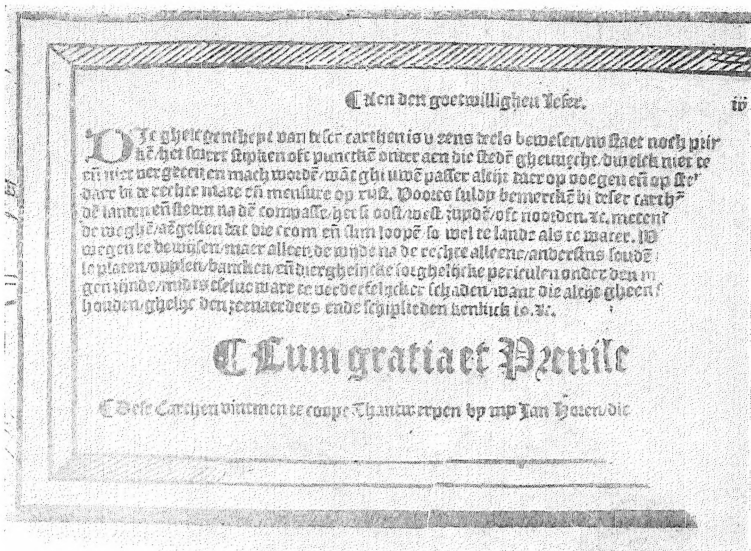 ¶ Aen den goetwillighen leser.
iij
DJe gheleghentheyt van deser carthen is v eens deels bewesen/nv staet noch
kē/het swert stipken oft punctkē onder aen die stedē ghemerckt/dwelck niet te
eñ niet vergeten en mach wordē/wāt ghi uwen passer altijt daer op voegen eñ op
daer bi de rechte mate eñ mensure op rust. Voorts suldy bemerckē bi deser carthē
dē landen eñ steden na dē compasse/het si oost/west/zuydē/oft noorden. ⁊c. meten
de weghē/aēgesien dat die crom eñ slim loopē/so wel te lande als te water.
wegen te bewijsen/maer alleen de winde na de rechte alleene/andersins soudē
te platen/ bancken/eñ dierghelijcke sorghelijcke periculen onder den
gen zijnde/midts tselue ware te verderfelijcker schaden/want die altijt gheen
houden/ghelijc den zeenaerders ende schiplieden kenlick is. ⁊c.
¶ Cum gratia et Preuile
¶ Dese Carthen vintmen te coope Thantwerpen by my Jan /die